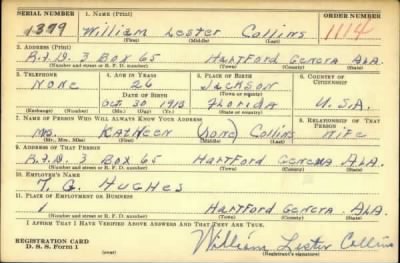 SERIAL NUMBER 1. NAME (Print) ORDER NUMBER
1379 William Lester Collins 1114
(First) (Middle) (Last)
2. ADDRESS (Print)
R.F.D. 3 Box 65 Hartford Geneva Ala.
(Number and street or R. F. D. number) (Town) (County) (State)
3. TELEPHONE 4. AGE IN YEARS 5. PLACE OF BIRTH 6. COUNTRY OF CITIZENSHIP
None 26 Jackson
DATE OF BIRTH (Town or county)
Oct. 30 1913 Florida U.S.A.
(Exchange) (Number) (Mo.) (Day) (Yr.) (State or country)
7. NAME OF PERSON WHO WILL ALWAYS KNOW YOUR ADDRESS 8. RELATIONSHIP OF THAT PERSON
Mrs. Kathleen (none) Collins Wife
(Mr., Mrs., Miss) (First) (Middle) (Last)
9. ADDRESS OF THAT PERSON
R.F.D. 3 Box 65 Hartford Geneva Ala.
(Number and street or R. F. D. number) (Town) (County) (State)
10. EMPLOYER'S NAME
T. G. Hughes
11. PLACE OF EMPLOYMENT OR BUSINESS
1 Hartford Geneva Ala.
(Number and street or R. F. D. number) (Town) (County) (State)
I AFFIRM THAT I HAVE VERIFIED ABOVE ANSWERS AND THAT THEY ARE TRUE.
REGISTRATION CARD
D. S. S. Form 1 William Lester Collins
(Registrant's signature)